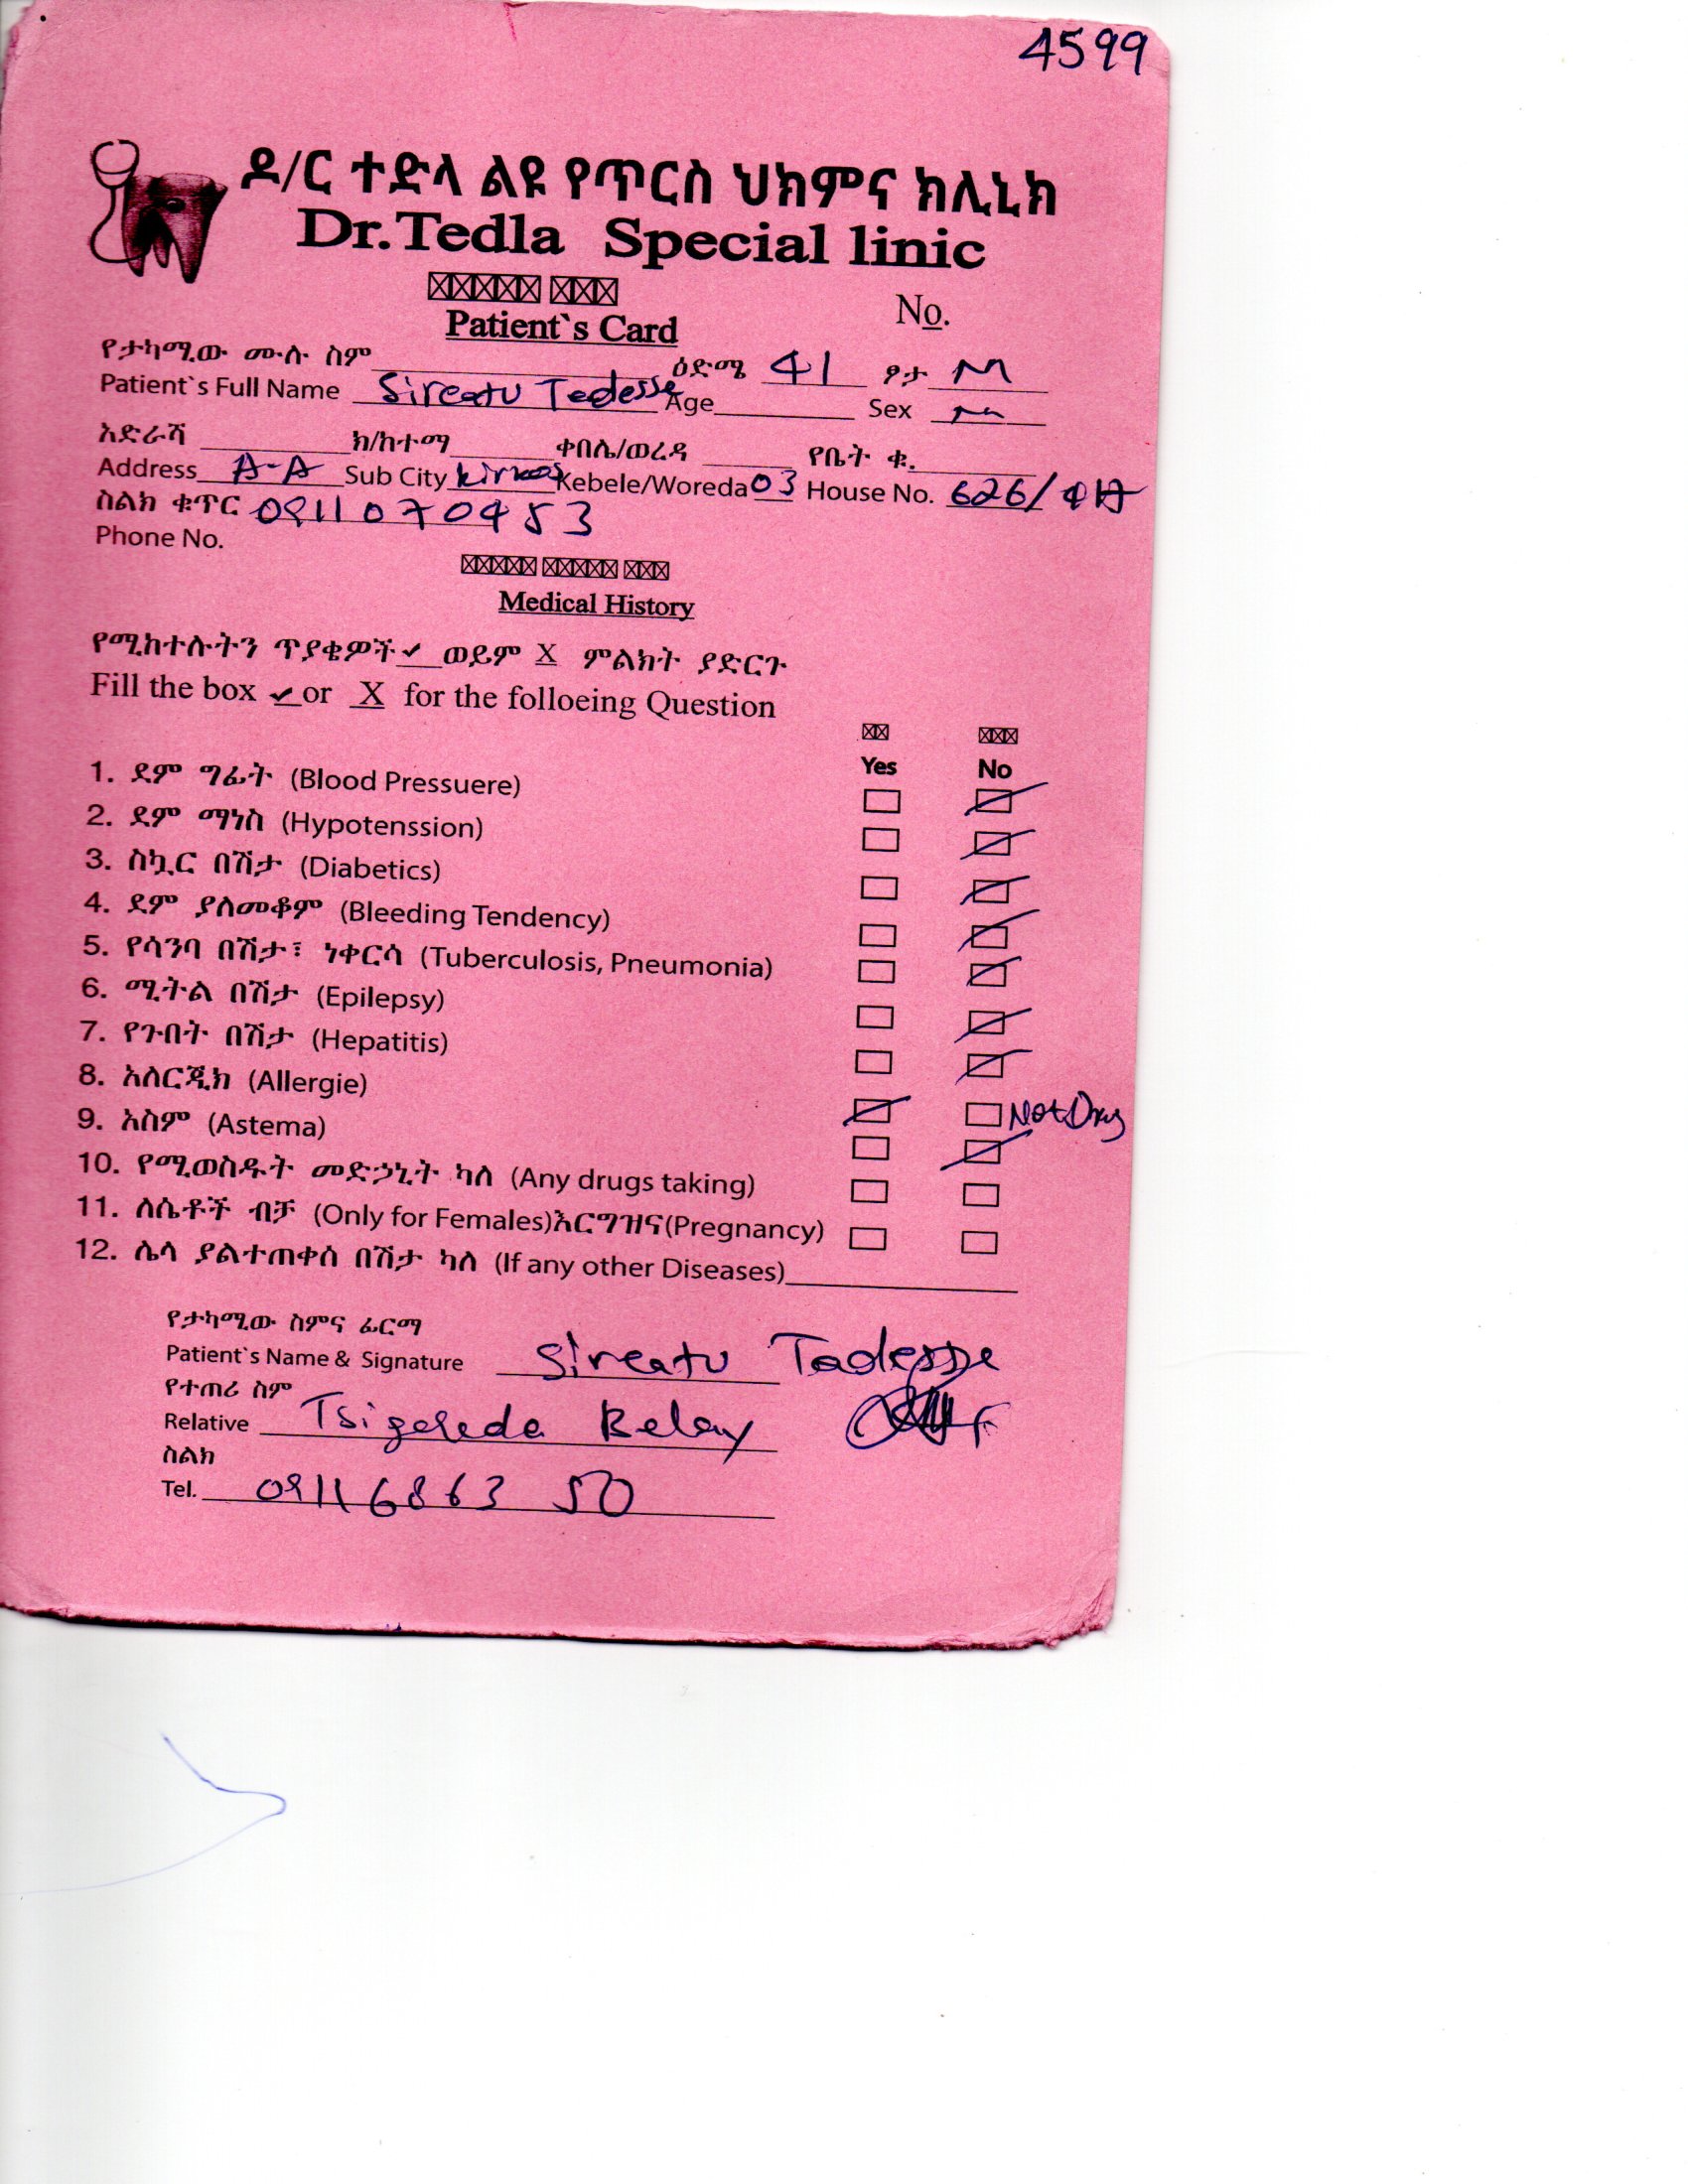 4599
ዶ/ር ተድላ ልዩ የጥርስ ህክምና ክሊኒክ
Dr.Tedla Special linic
No.
Patient`s Card
የታካሚው ሙሉ ስም ዕድሜ 41 ፆታ M
Patient`s Full Name Sireatu Tadesse Age Sex M
አድራሻ ክ/ከተማ ቀበሌ/ወረዳ የቤት ቁ.
Address A-A Sub City kirkos Kebele/Woreda 03 House No. 626/
ስልክ ቁጥር 0911070453
Phone No.
Medical History
የሚከተሉትን ጥያቄዎች ✓ ወይም X ምልክት ያድርጉ
Fill the box ✓ or X for the folloeing Question
Yes No
1. ደም ግፊት (Blood Pressuere)
2. ደም ማነስ (Hypotenssion)
3. ስኳር በሽታ (Diabetics)
4. ደም ያለመቆም (Bleeding Tendency)
5. የሳንባ በሽታ፣ ነቀርሳ (Tuberculosis, Pneumonia)
6. ሚትል በሽታ (Epilepsy)
7. የጉበት በሽታ (Hepatitis)
8. አለርጂክ (Allergie) Not Drug
9. አስም (Astema)
10. የሚወስዱት መድኃኒት ካለ (Any drugs taking)
11. ለሴቶች ብቻ (Only for Females)እርግዝና(Pregnancy)
12. ሌላ ያልተጠቀሰ በሽታ ካለ (If any other Diseases)
የታካሚው ስምና ፊርማ
Patient`s Name & Signature Sireatu Tadesse
የተጠሪ ስም
Relative Tsigereda Belay
ስልክ
Tel. 0911686350